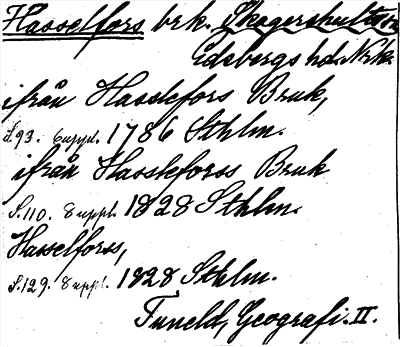 Hasselfors brk. Skagershults sn
Edsbergs hd. Nrk.
ifrån Hasslefors Bruk,
S. 93. 6 uppl. 1786 Sthlm.
ifrån Hassleforss Bruk
S. 110. 8 uppl. 1828 Sthlm.
Hasselforss,
S. 129. 8 uppl. 1828 Sthlm.
Tuneld, Geografi. II.